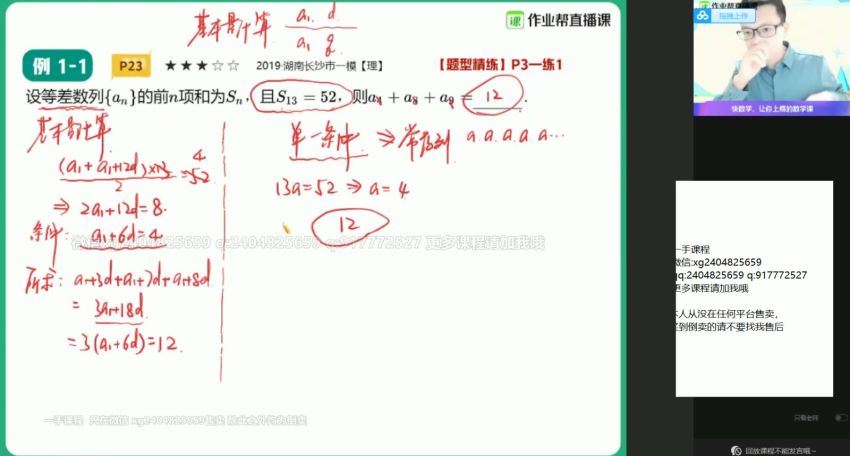 基本量计算 a₁ d / a₁ q
作业帮直播课
作业帮直播课
拖拽上传
快数学，让你上瘾的数学课
例 1-1 P23 ★★★☆☆ 2019·湖南长沙市一模【理】 【题型精练】P3一练1
设等差数列{aₙ}的前n项和为Sₙ，且S₁₃＝52，则a₄＋a₈＋a₉＝ 12 .
基本量计算
(a₁+a₁+12d)×13 / 2 = 52 4
⇒ 2a₁+12d=8.
条件: a₁+6d=4.
所求: a₁+3d+a₁+7d+a₁+8d
= 3a₁+18d
=3(a₁+6d)=12.
单一条件 ⇒ 常数列 a a a a a…
13a=52 ⇒ a=4
12
q:2404825659 q:917772527 更多课程请加我哦
一手课程
微信:xg2404825659
qq:2404825659 q:917772527
更多课程请加我哦
本人从没在任何平台售卖，
买到倒卖的请不要找我售后
一手课程 只在微信 xg2404825659售卖 除此之外均为倒卖
只看老师
回放课程不能发言哦~